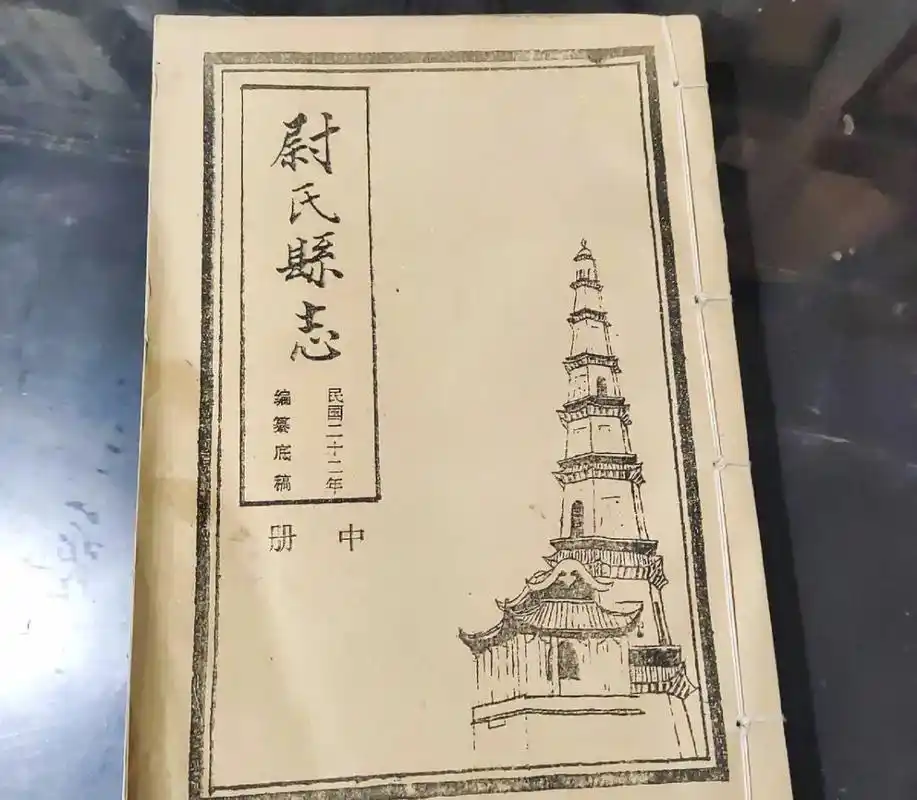 尉氏縣志
民国二十二年
编纂底稿
中册